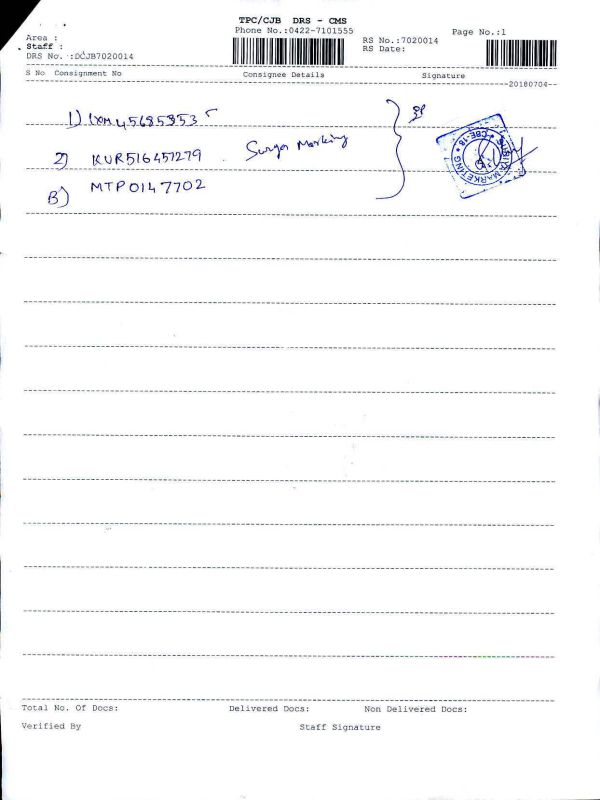 TPC/CJB DRS - CMS
Phone No.:0422-7101555
Page No.:1
Area :
Staff :
RS No.:7020014
RS Date:
DRS No. :DCJB7020014
S No Consignment No Consignee Details Signature
20180704
1)
2) KUR516451279 Marking
3) MTP0147702
MARKETING * CBE-18 *
Total No. Of Docs: Delivered Docs: Non Delivered Docs:
Verified By Staff Signature